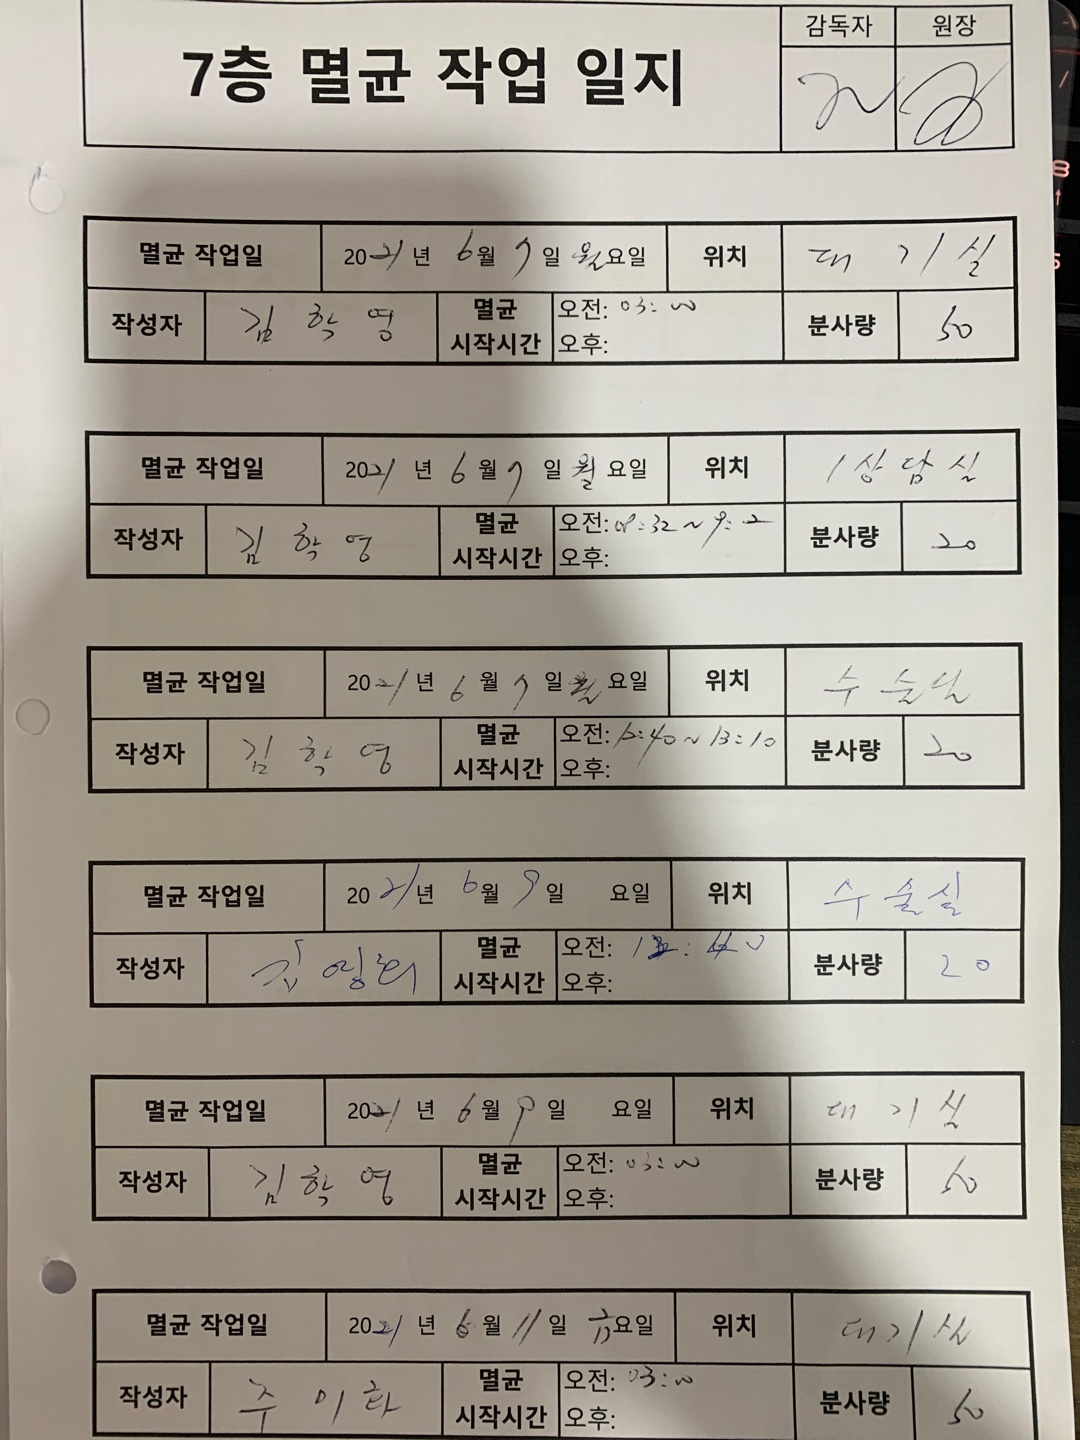 감독자 원장
7층 멸균 작업 일지
멸균 작업일 2021년 6월 7일 월요일 위치 대기실
작성자 김학영 멸균 시작시간 오전: 03:00 오후: 분사량 50
멸균 작업일 2021년 6월 7일 월요일 위치 1상담실
작성자 김학영 멸균 시작시간 오전: 08:32~9:2 오후: 분사량 20
멸균 작업일 2021년 6월 7일 월요일 위치 수술실
작성자 김학영 멸균 시작시간 오전: 12:40~13:10 오후: 분사량 20
멸균 작업일 2021년 6월 9일 요일 위치 수술실
작성자 멸균 시작시간 오전: 오후: 분사량 20
멸균 작업일 2021년 6월 9일 요일 위치 대기실
작성자 김학영 멸균 시작시간 오전: 03:00 오후: 분사량 50
멸균 작업일 2021년 6월 11일 금요일 위치 대기실
작성자 주이하 멸균 시작시간 오전: 03:00 오후: 분사량 50